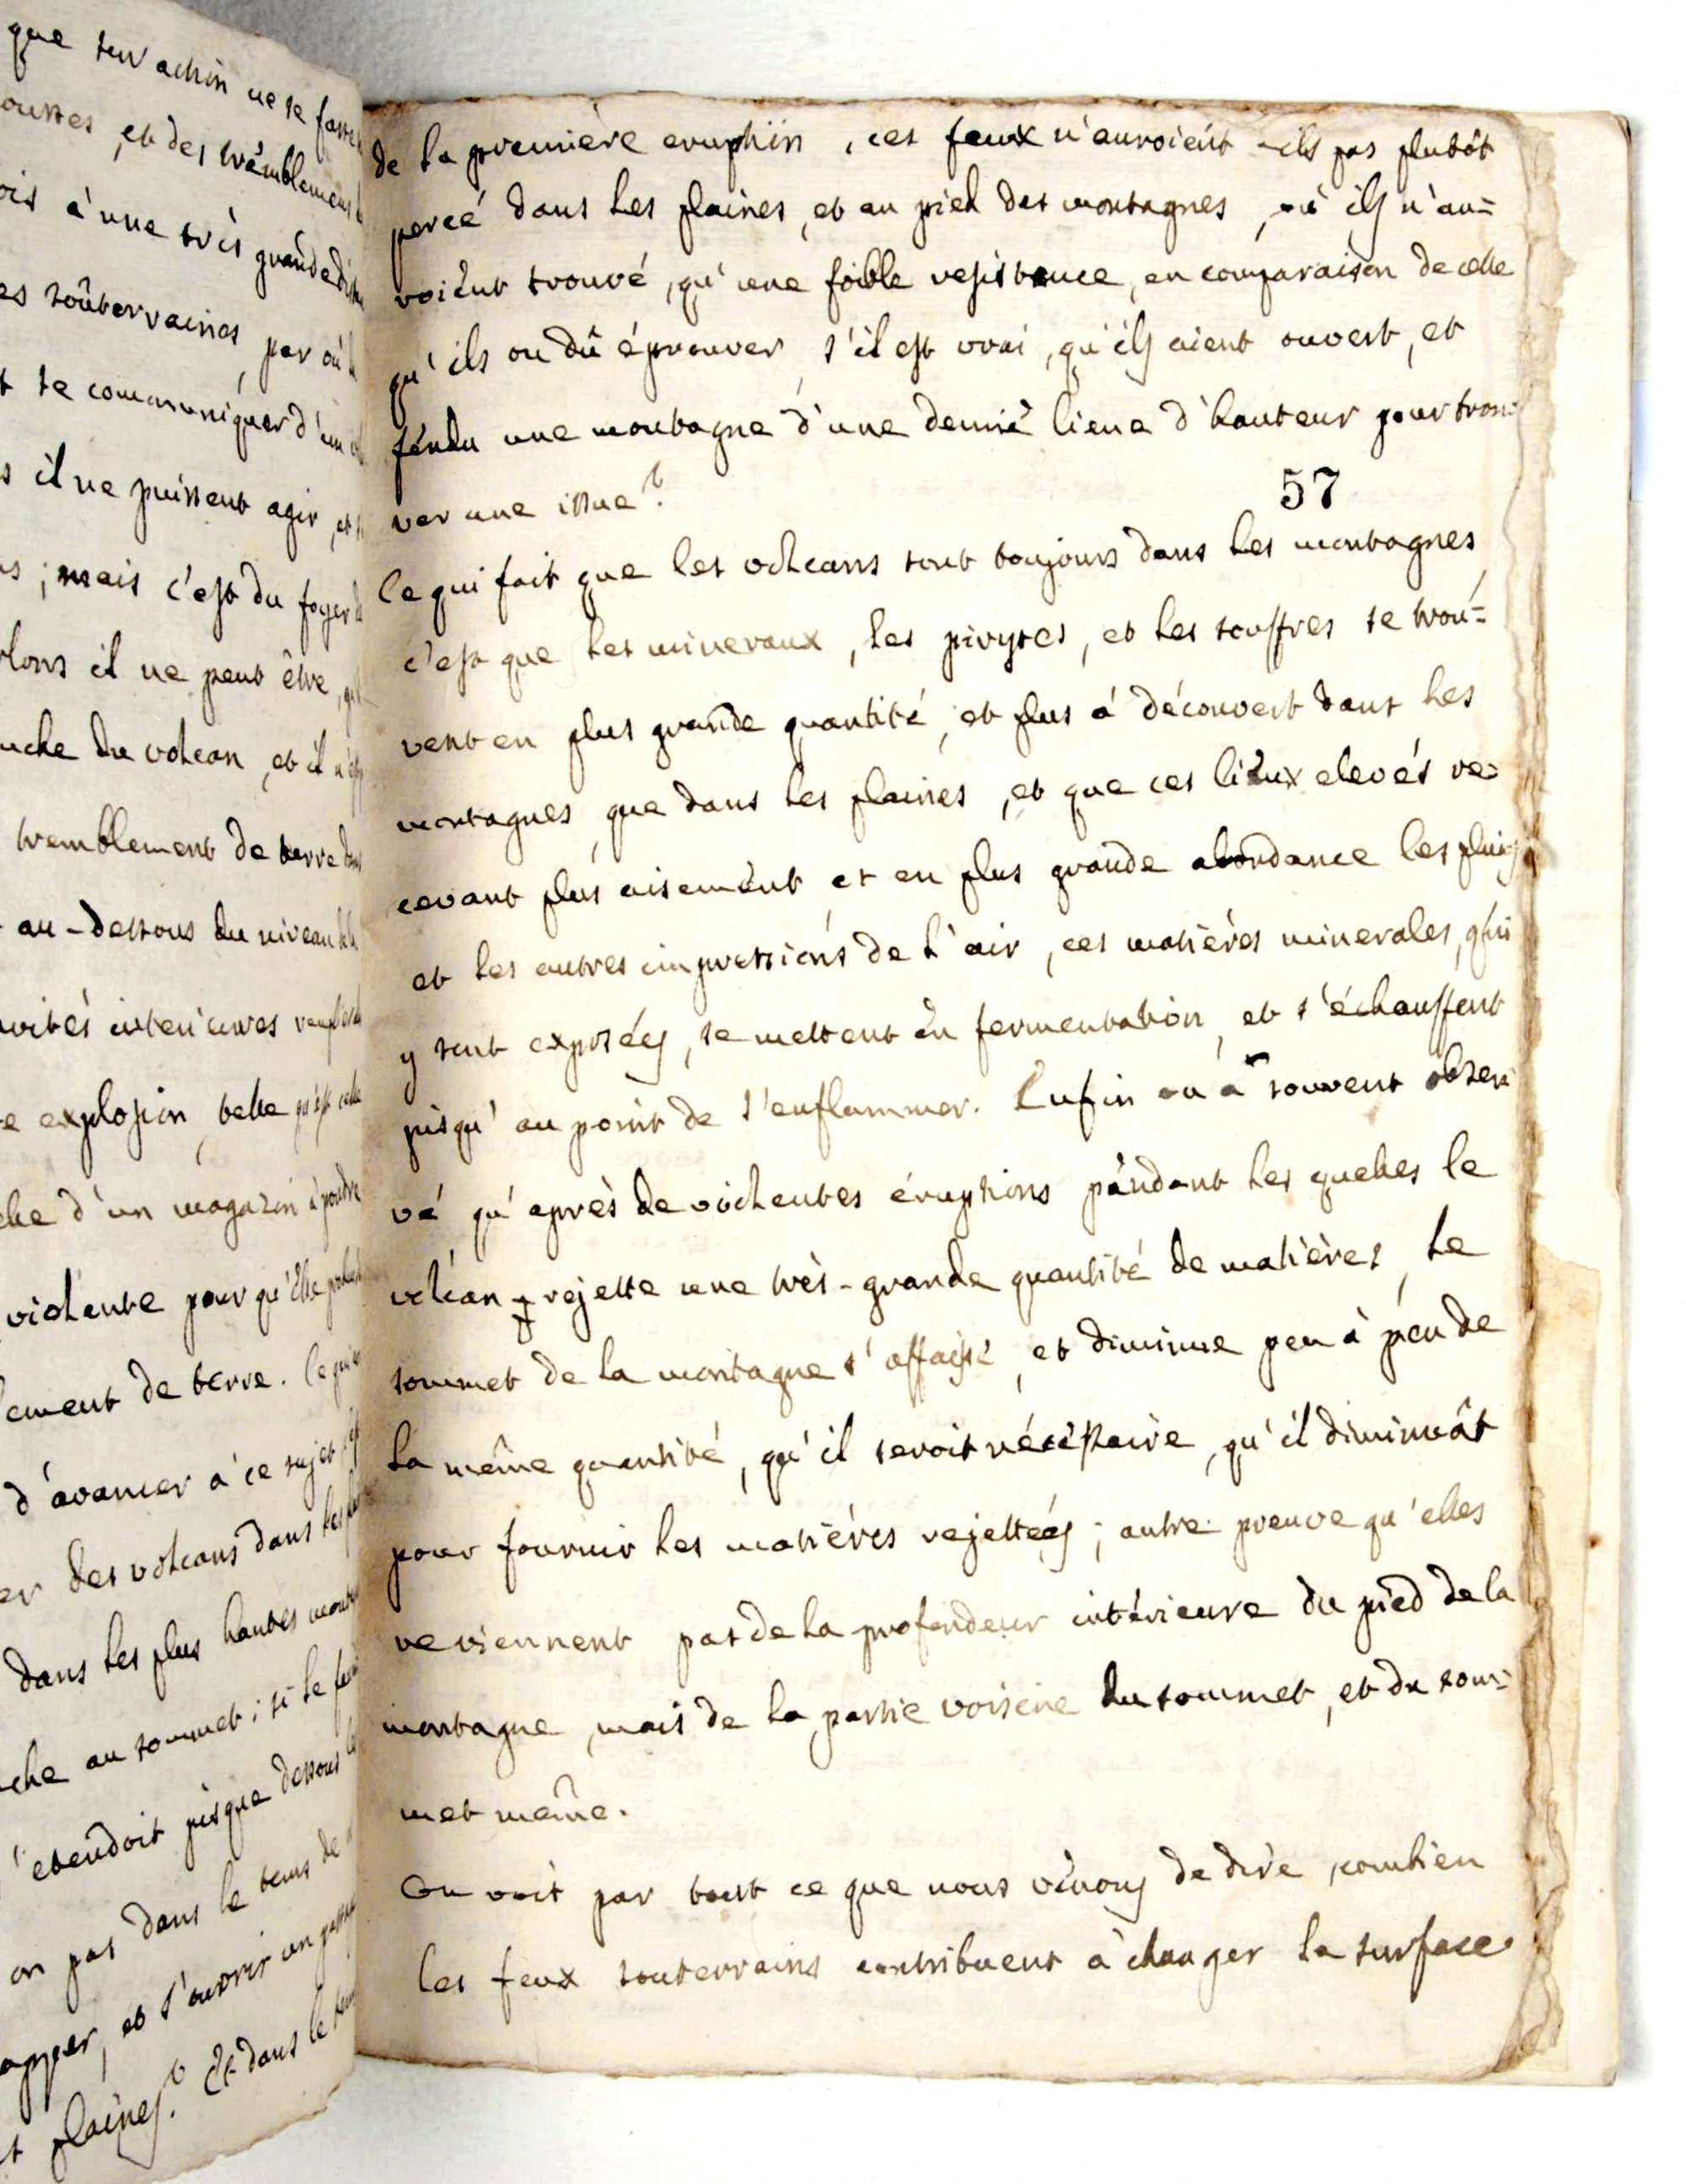 que son action ne se fasse
ousses, et des tremblemens
ois à une très grande
es soûterraines, par où
t se communiquer d'un
s il ne puissent agir, et
s ; mais c'est du foyer
lons il ne peut être,
uche du volcan, et il
tremblement de terre dans
au-dessous du niveau de la
vités interieures
e explosion, telle qu'est celle
che d'un magazin à poudre
violente pour qu'elle
lement de terre. Ce qui
d'avancer à ce sujet
er des volcans dans les
dans les plus hautes
che au sommet ; si le feu
'etendoit jusque dessous les
on pas dans le tems de
apper, et s'ouvrir un
t plaines ? Et dans le tems
de la première eruption, ces feux n'auroient-ils pas plutôt
percé dans les plaines, et au pied des montagnes, où ils n'au=
roient trouvé, qu'une foible resistance, en comparaison de celle
qu'ils on dû éprouver, s'il est vrai, qu'ils aient ouvert, et
fendu une montagne d'une demie lieue d'hauteur pour trou=
ver une issue ?
57
Ce qui fait que les volcans sont toujours dans les montagnes
c'est que les mineraux, les piryses, et les souffres se trou=
vent en plus grande quantité, et plus à découvert dans les
montagnes, que dans les plaines, et que ces lieux elevés re=
cevant plus aisement et en plus grande abondance les pluies
et les autres impressions de l'air, ces matières minerales, qui
y sont exposées, se mettent en fermentation, et s'échauffent
jusqu'au point de s'enflammer. Enfin on a souvent obser
vé qu'après de violentes éruptions pendant les quelles le
volcan rejette une très-grande quantité de matières, le
sommet de la montagne s'affaisse, et diminue peu à peu de
la même quantité, qu'il seroit nécessaire, qu'il diminuât
pour fournir les matières rejettées ; autre preuve qu'elles
ne viennent pas de la profondeur intérieure du pied de la
montagne, mais de la partie voisine du sommet, et du som=
met même.
On voit par tout ce que nous vénons de dire, combien
les feux souterrains contribuent à changer la surface